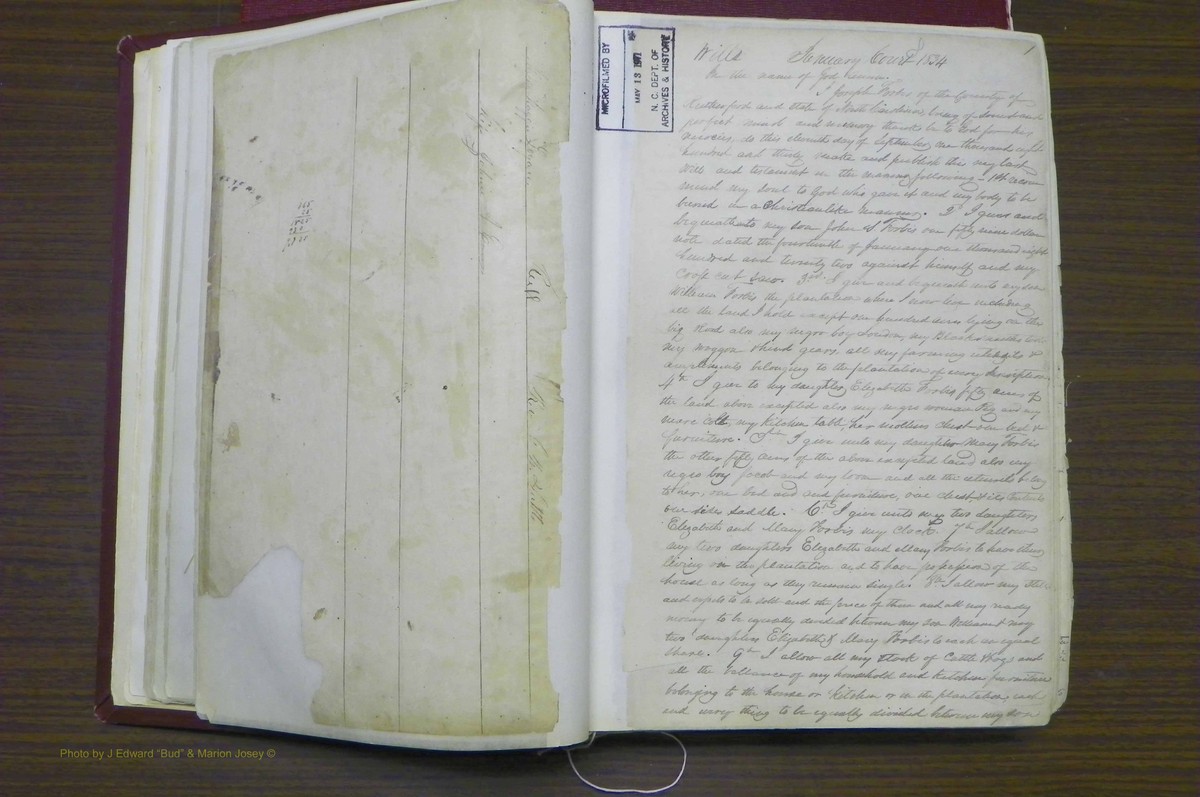 Wills January Court 1834
1
In the name of God Amen.
I Joseph Forbis of the County of
Rutherford and state of North Carolina being of sound and
perfect mind and memory thanks be to God for his
mercies, do this eleventh day of September one thousand eight
hundred and thirty make and publish this my last
Will and testament in the manner following - 1st recom
mend my soul to God who gave it and my body to be
buried in a Christianlike manner. 2d I give and
bequeath unto my son John S Forbis one fifty nine dollar
note dated the fourteenth of January one thousand eight
hundred and twenty two against himself and my
cross cut saw. 3rd. I give and bequeath unto my son
William Forbis the plantation where I now live including
all the land I hold except one hundred acres lying on the
big road also my negro boy my
my waggon & hind gears all my farming utensils &
implements belonging to the plantation of every description
4th I give to my daughter Elizabeth Forbis fifty acres of
the land above excepted also my negro woman and my
mare colt, my kitchen table, her mothers chest one bed &
furniture. 5th I give unto my daughter Mary Forbis
the other fifty acres of the above excepted land also my
negro boy and my loom and all the utensils belong
to her, one bed and and furniture, one chest &
one side saddle. 6th I give unto my two daughters
Elizabeth and Mary Forbis my clock. 7th I allow
my two daughters Elizabeth and Mary Forbis to have their
living on the plantation and to have possession of the
house as long as they remain single. 8th I allow my
and to be sold and the price of them and all my ready
money to be equally divided between my son William & my
two daughters Elizabeth & Mary Forbis to each an equal
share. 9th I allow all my stock of Cattle & hogs and
all the ballance of my household and kitchen furniture
belonging to the house or kitchen or on the plantation each
and every thing to be equally divided between my son
MICROFILMED BY
MAY 13 1971
N. C. DEPT. OF
ARCHIVES & HISTORY
Photo by J Edward "Bud" & Marion Josey ©